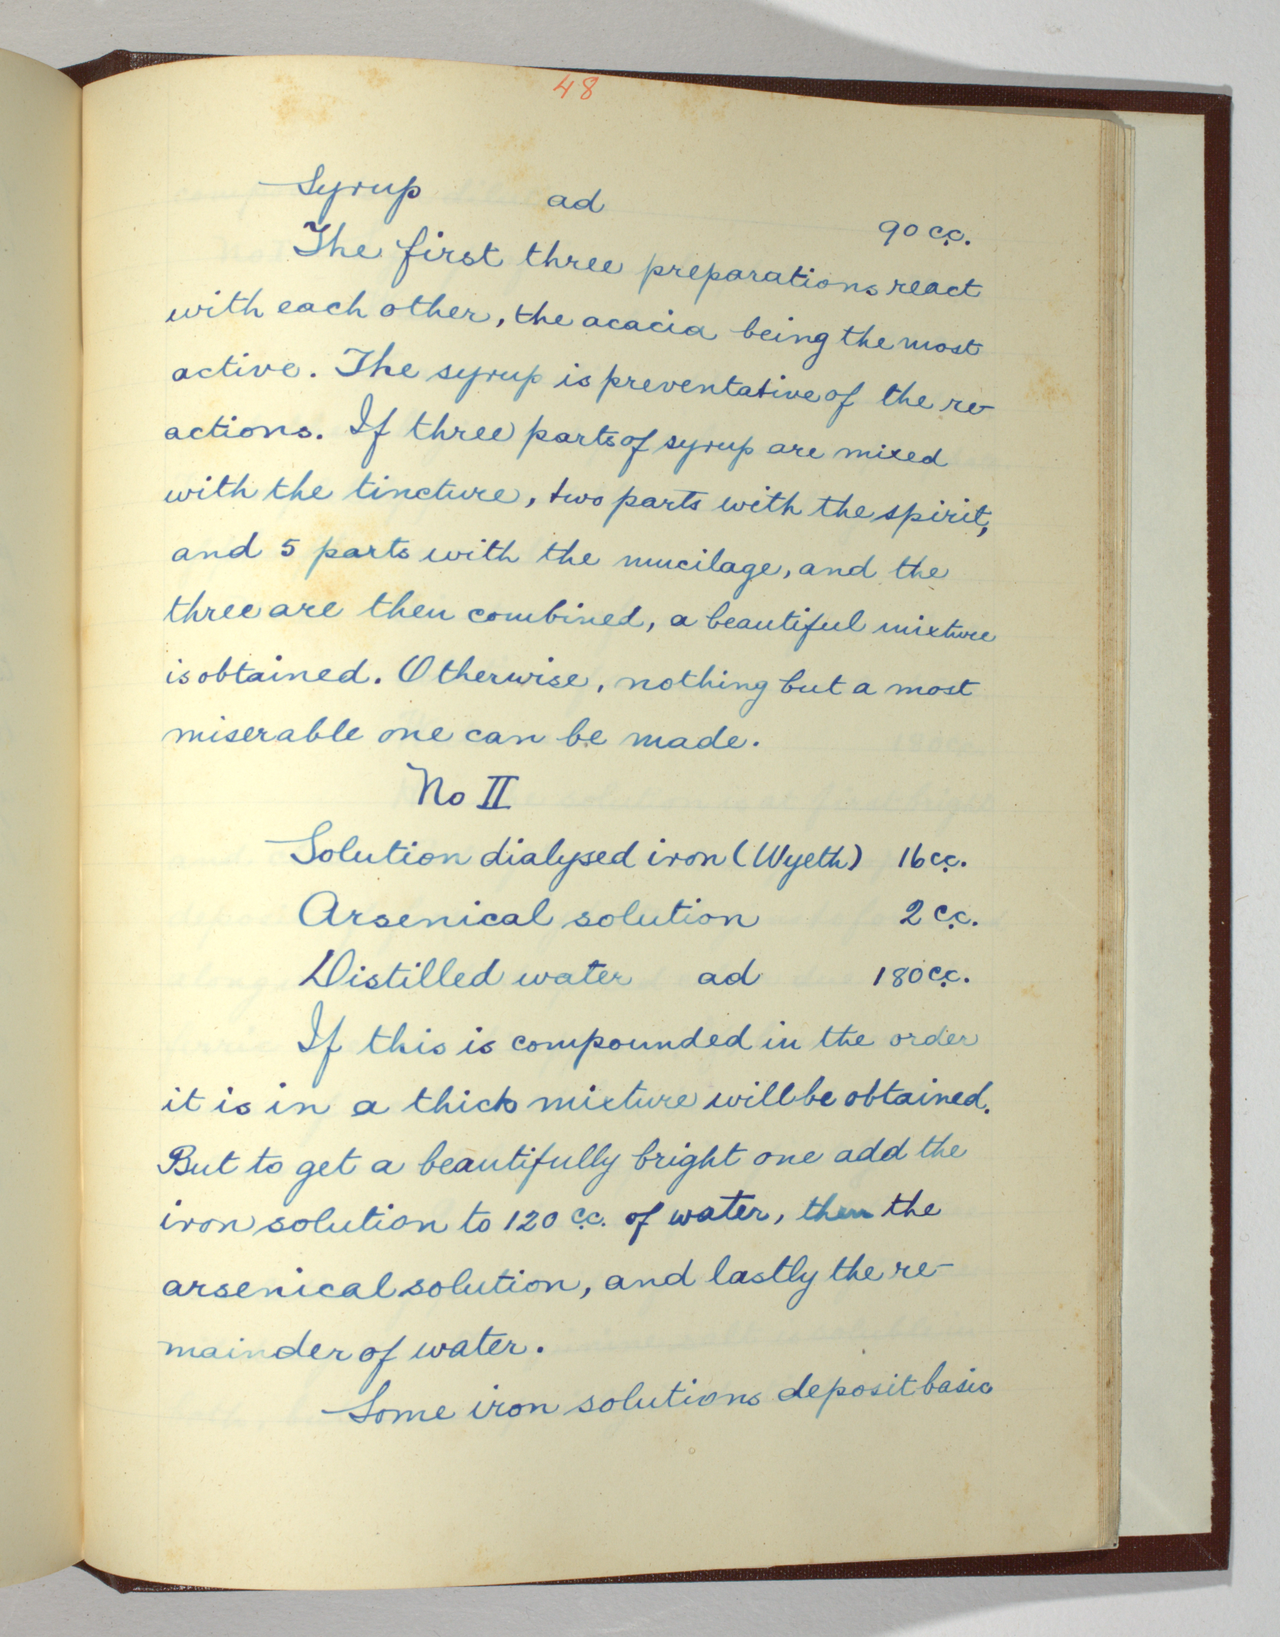 48
Syrup ad 90 c.c.
The first three preparations react
with each other, the acacia being the most
active. The syrup is preventative of the re-
actions. If three parts of syrup are mixed
with the tincture, two parts with the spirit,
and 5 parts with the mucilage, and the
three are then combined, a beautiful mixture
is obtained. Otherwise, nothing but a most
miserable one can be made.
No II
Solution dialysed iron (Wyeth) 16 c.c.
Arsenical solution 2 c.c.
Distilled water ad 180 c.c.
If this is compounded in the order
it is in a thick mixture will be obtained.
But to get a beautifully bright one add the
iron solution to 120 c.c. of water, then the
arsenical solution, and lastly the re-
mainder of water.
Some iron solutions deposit basic